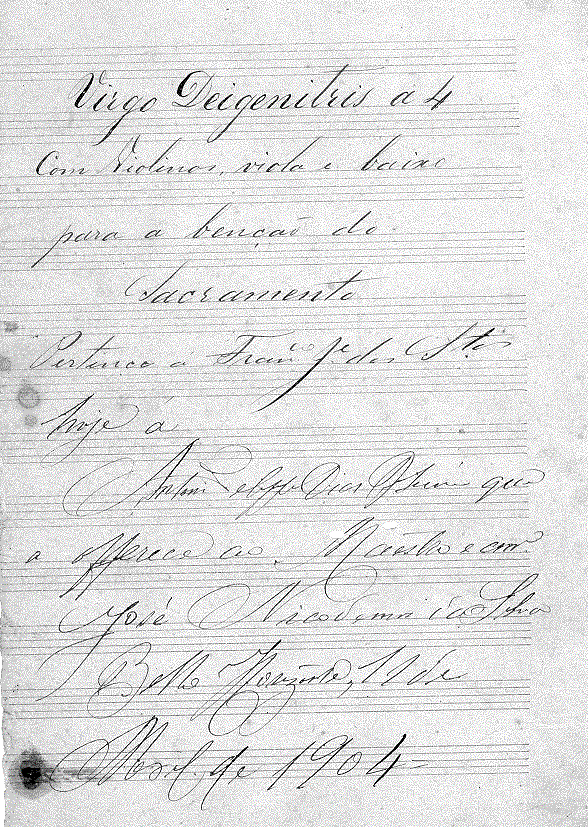 Virgo Deigenitris a 4
Com Violinos, viola e baixo
para a benção do
Sacramento
Pertence a Franco Je dos Stos
hoje á
Antonio que
a offerece ao Maestro e am.
José Nicodemos da Silva
Bello Horizonte, 11 de
Abril de 1904